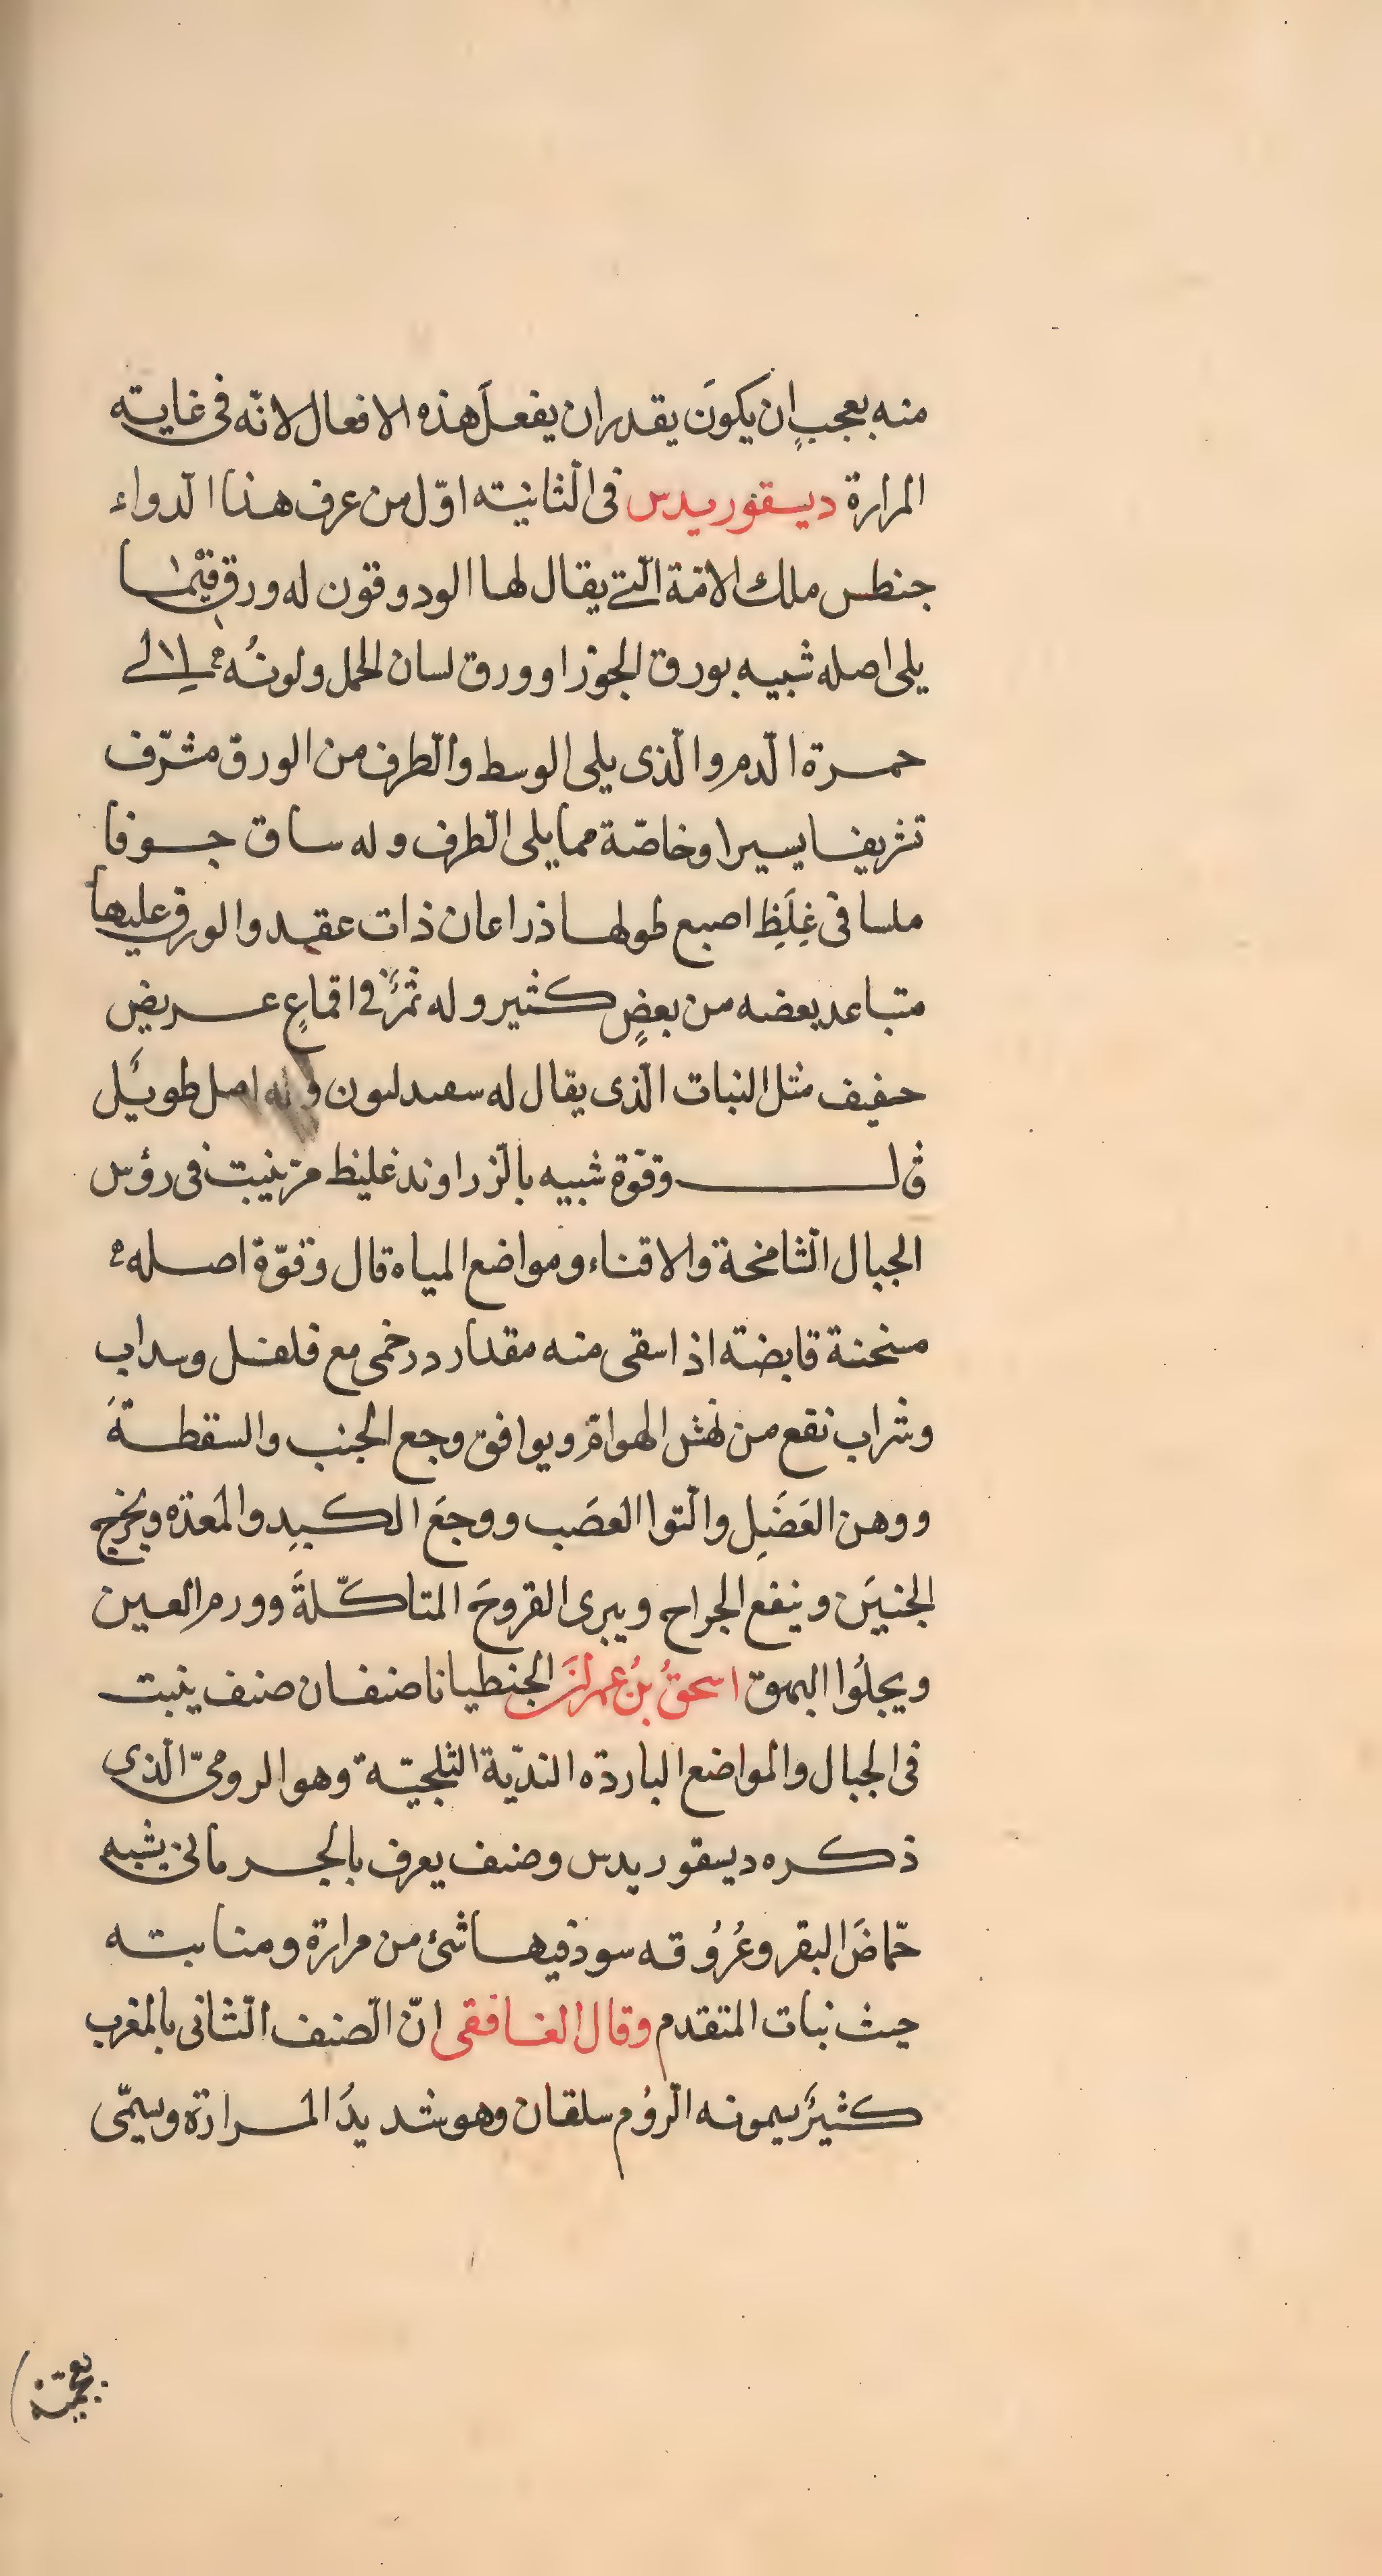 منه بعجبٍ ان يكونَ يقدر ان يفعلَ هذه الافعال لانّه فى غايته
المرارة ديسقوريدس فى الثّانيته اوّل من عرف هذا الدّواء
جنطس ملك الامّة الّتے يقال لها الودوقون له ورق فيْما
يلى اصله شبيه بورق الجوز او ورق لسان الحمل ولونُه الے
حمرة الدّم والّذى يلى الوسط والطّرف من الورق مشرّف
تشريفا يسيرا وخاصّة مما يلى الطّرف وله ساق جوفا
ملسا فى غِلَظِ اصبع طولها ذراعان ذات عقد والورق عليها
متباعد بعضه من بعضٍ كثير وله ثمرٌ فے اقماعٍ عريضٍ
خفيف مثل النبات الّذى يقال له سفندليون وله اصل طويل
قال وقوّة شبيه بالزّراوند غليظ مرّ ينبت فى رؤس
الجبال الشّامخة والاقناء ومواضع المياه قال وقوّة اصله
مسخنة قابضته اذا سقى منه مقدار درخمى مع فلفل وسداب
وشراب نفع من نهش الهوامّ ويوافق وجع الجنب والسقطةَ
ووهن العَضَلِ والتوا العصَب ووجعَ الكبدِ والمعدّه ويخرج
الجنينَ وينفع الجراح ويبرى القروحَ المتاكّلةَ وورم العين
ويجلُوا البهوق اسحقُ بنُ عمرانَ الجنطيانا صنفان صنف ينبت
فى الجبال والمواضع الباردّه الندّية الثلجيّة وهو الرومىّ الّذى
ذكره ديسقوريدس وصنف يعرف بالجرمانى يشبه
حّماضَ البقر وعُرُوقه سود فيها شئ من مرارة ومنابته
حيث نبات المتقدم وقال الغافقى انّ الصّنف الثّانى بالمغرب
كثيرٌ يسمونه الرّوُم سلقان وهو شديدُ المرارة ويسمّى
بعجمية